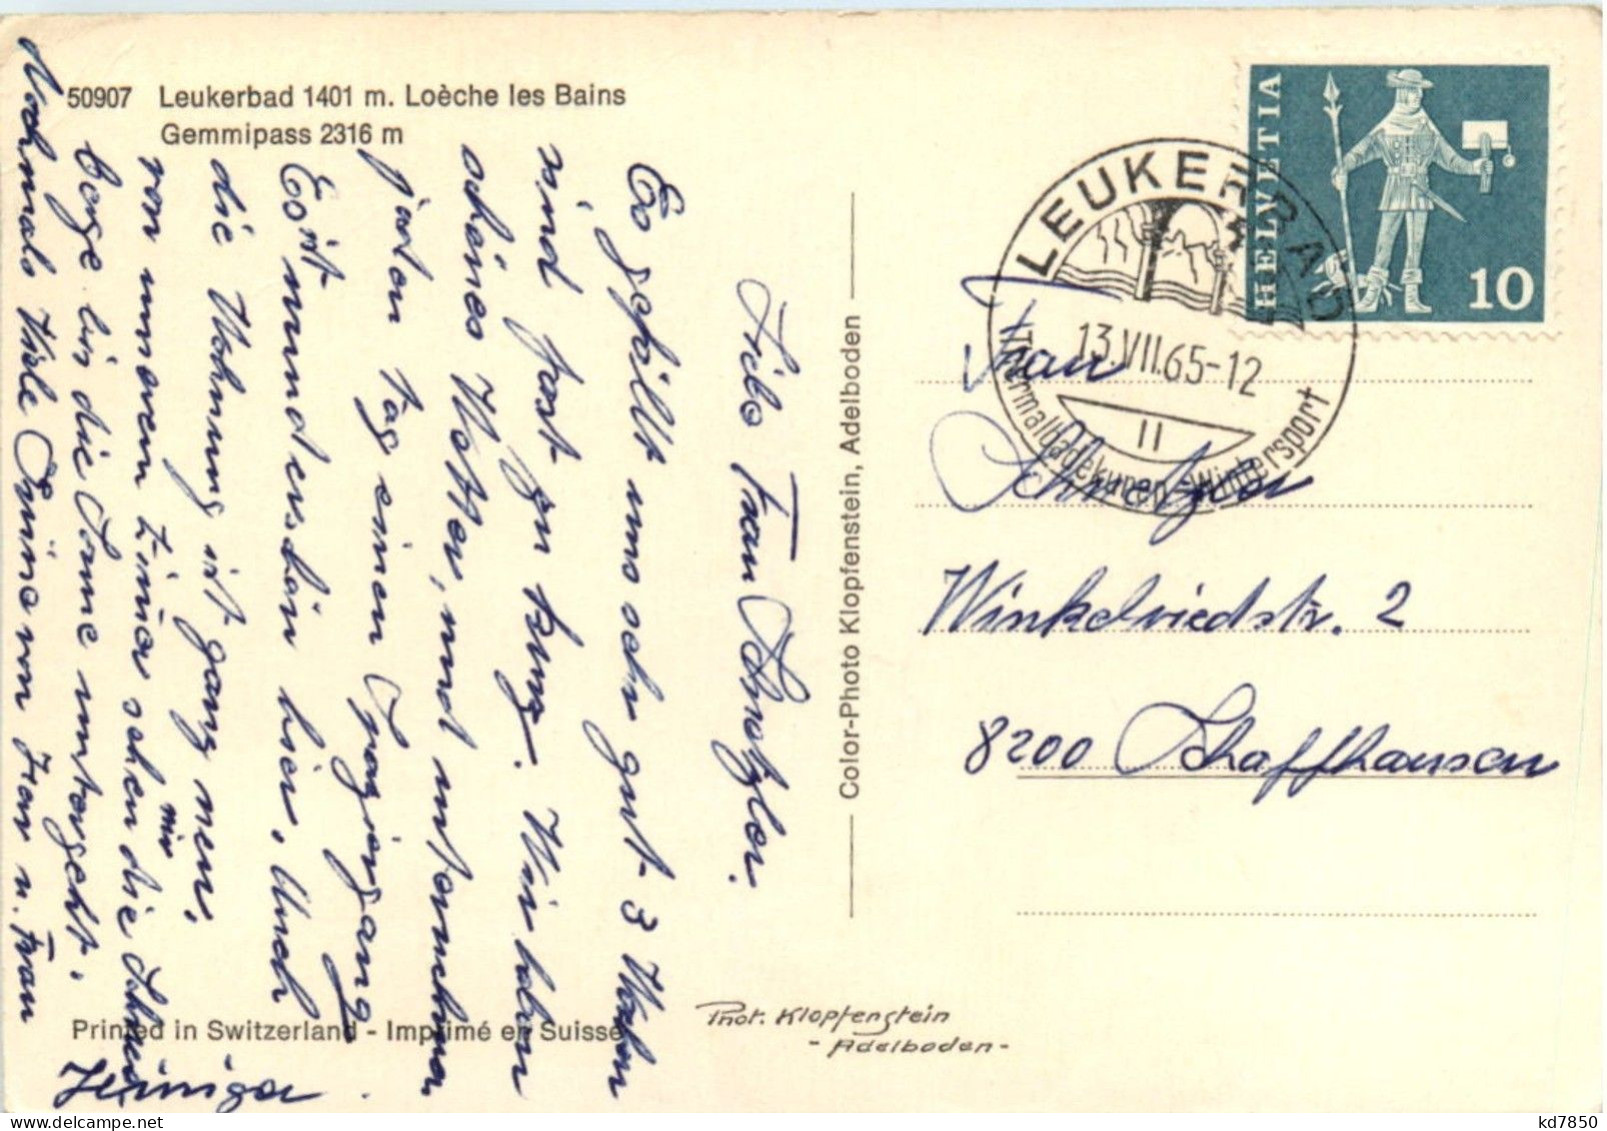 50907 Leukerbad 1401 m. Loèche les Bains
Gemmipass 2316 m
HELVETIA
10
LEUKERBAD
13.VII.65-12
II
Thermalbadekuren - Wintersport
Liebe Frau Schnetzler.
Es gefällt uns sehr gut. 3 Wochen
sind fast zu kurz. Wir haben
schönes Wetter, und unternehmen
jeden Tag einen Spaziergang
Es ist wunderbar hier. Auch
die Wohnung ist ganz neu,
von unserem Zimer sehen wir die
berge bis die Sonne untergeht.
Nochmals viele Grüsse von Herr u. Frau
Frau
Schnetzler
Winkelriedstr. 2
8200 Schaffhausen
Color-Photo Klopfenstein, Adelboden
Phot. Klopfenstein
- Adelboden -
Printed in Switzerland - Imprimé en Suisse
kd7850